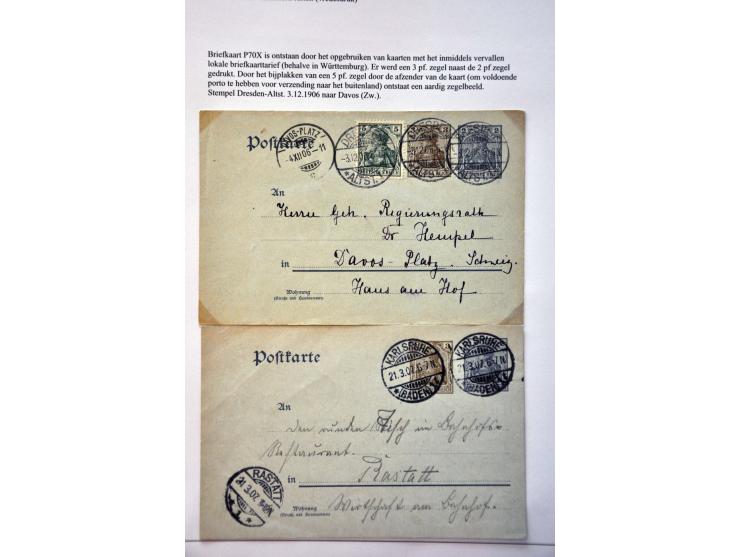 Briefkaart P70X is ontstaan door het opgebruiken van kaarten met het inmiddels vervallen
lokale briefkaarttarief (behalve in Württemburg). Er werd een 3 pf. zegel naast de 2 pf zegel
gedrukt. Door het bijplakken van een 5 pf. zegel door de afzender van de kaart (om voldoende
porto te hebben voor verzending naar het buitenland) ontstaat een aardig zegelbeeld.
Stempel Dresden-Altst. 3.12.1906 naar Davos (Zw.).
DAVOS-PLATZ
-4.XII.06-11
Postkarte
ALTST.
An
Herrn Geh. Regierungsrath
Dr Hempel
in Davos-Platz. Schweiz.
Wohnung
Haus am Hof
Postkarte
KARLSRUHE
21.3.07.6-7N.
(BADEN)
KARLSRUHE
21.3.07.6-7N.
(BADEN)
An
den runden Tisch im Bahnhofs-
Restaurant.
in Rastatt
RASTATT
21.3.07.
Wohnung
Wirtschaft am Bahnhof.